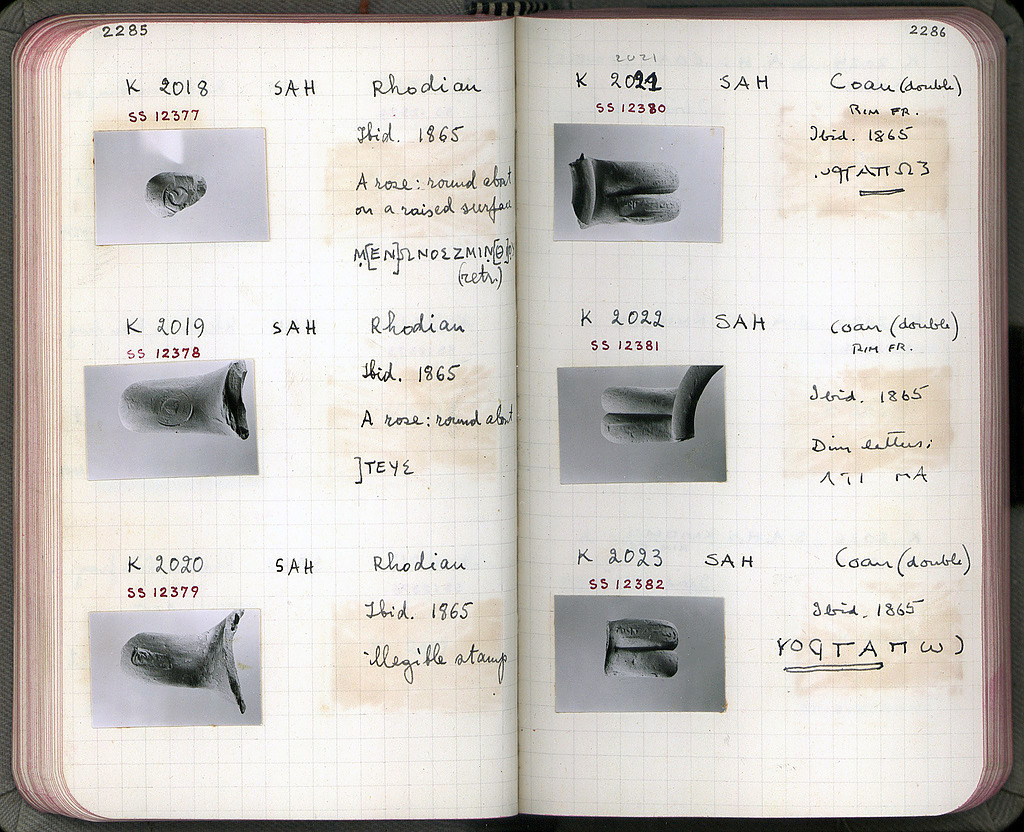 2285
K 2018 SAH Rhodian
SS 12377
Ibid. 1865
A rose: round about
on a raised surface
(retr.)
K 2019 SAH Rhodian
SS 12378
Ibid. 1865
A rose: round about
]ΤΕΥΣ
K 2020 SAH Rhodian
SS 12379
Ibid. 1865
illegible stamp
2286
2021
K 2021 SAH Coan (double)
SS 12380 RIM FR.
Ibid. 1865
K 2022 SAH Coan (double)
SS 12381 RIM FR.
Ibid. 1865
Dim letters;
K 2023 SAH Coan (double)
SS 12382
Ibid. 1865